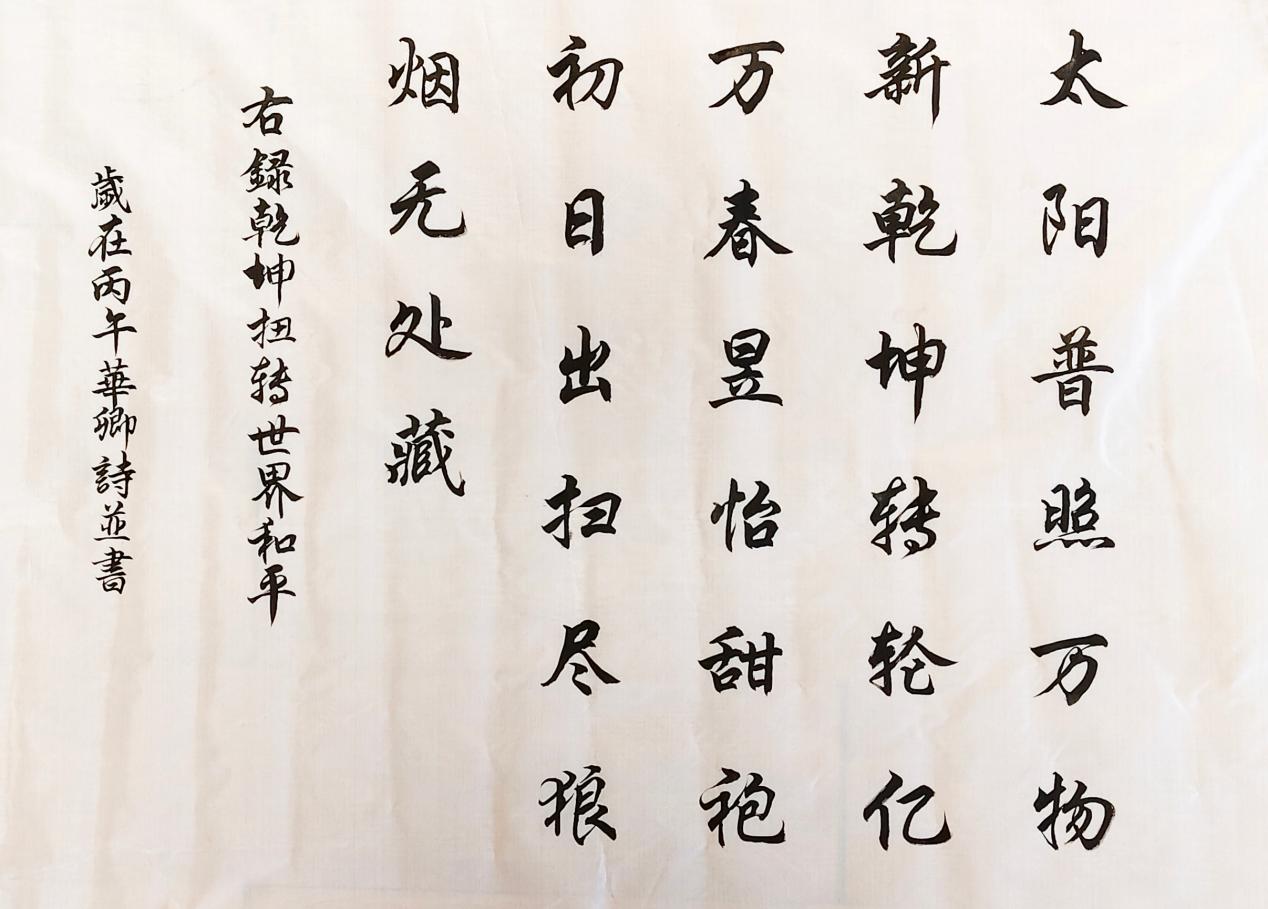 太阳普照万物
新乾坤转轮亿
万春昱怡甜袍
初日出扫尽狼
烟无处藏
右録乾坤扭转世界和平
歲在丙午華卿詩並書